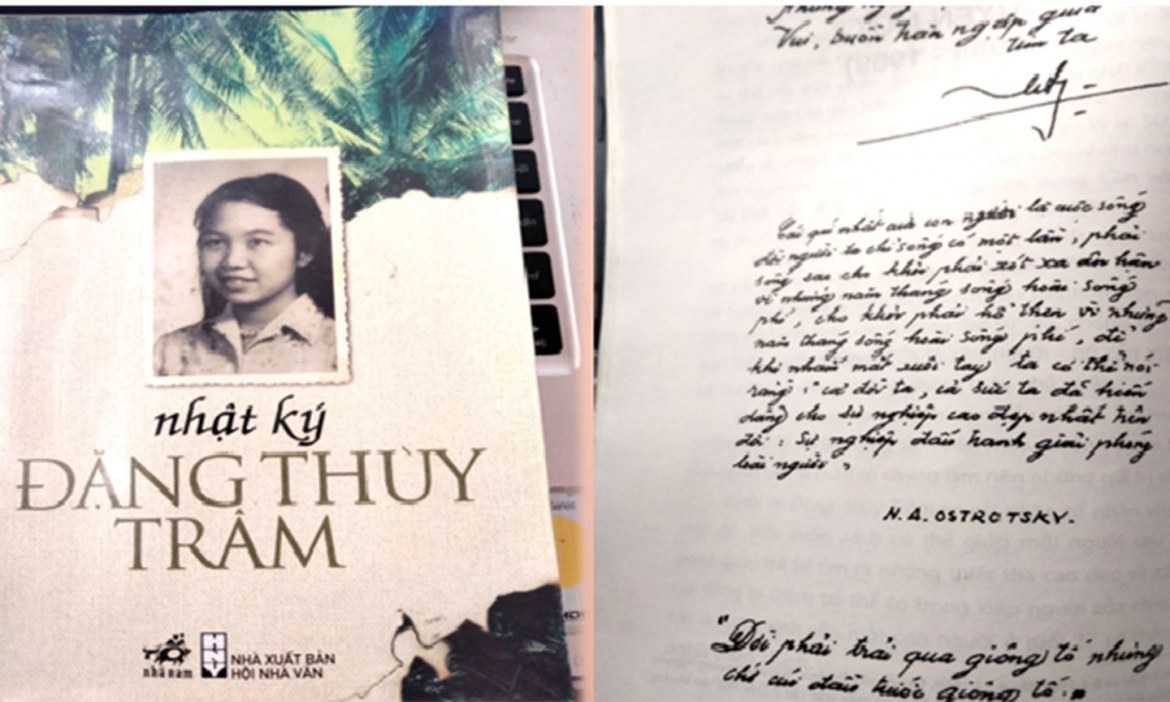 nhật ký
ĐẶNG THÙY
TRÂM
nhã nam
NHÀ XUẤT BẢN
HỘI NHÀ VĂN
Vui, buồn hờn ngập qua
tim ta
Cái quí nhất của con người là cuộc sống
đời người ta chỉ sống có một lần, phải
sống sao cho khỏi phải xót xa ân hận
vì những năm tháng sống hoài sống
phí, cho khỏi phải hổ thẹn vì những
năm tháng sống hoài sống phí, để
khi nhắm mắt xuôi tay ta có thể nói
rằng : cả đời ta, cả sức ta đã hiến
dâng cho sự nghiệp cao đẹp nhất trên
đời : Sự nghiệp đấu tranh giải phóng
loài người "
N.A. OSTROTSKY.
"Đời phải trải qua giông tố nhưng
chớ cúi đầu trước giông tố"